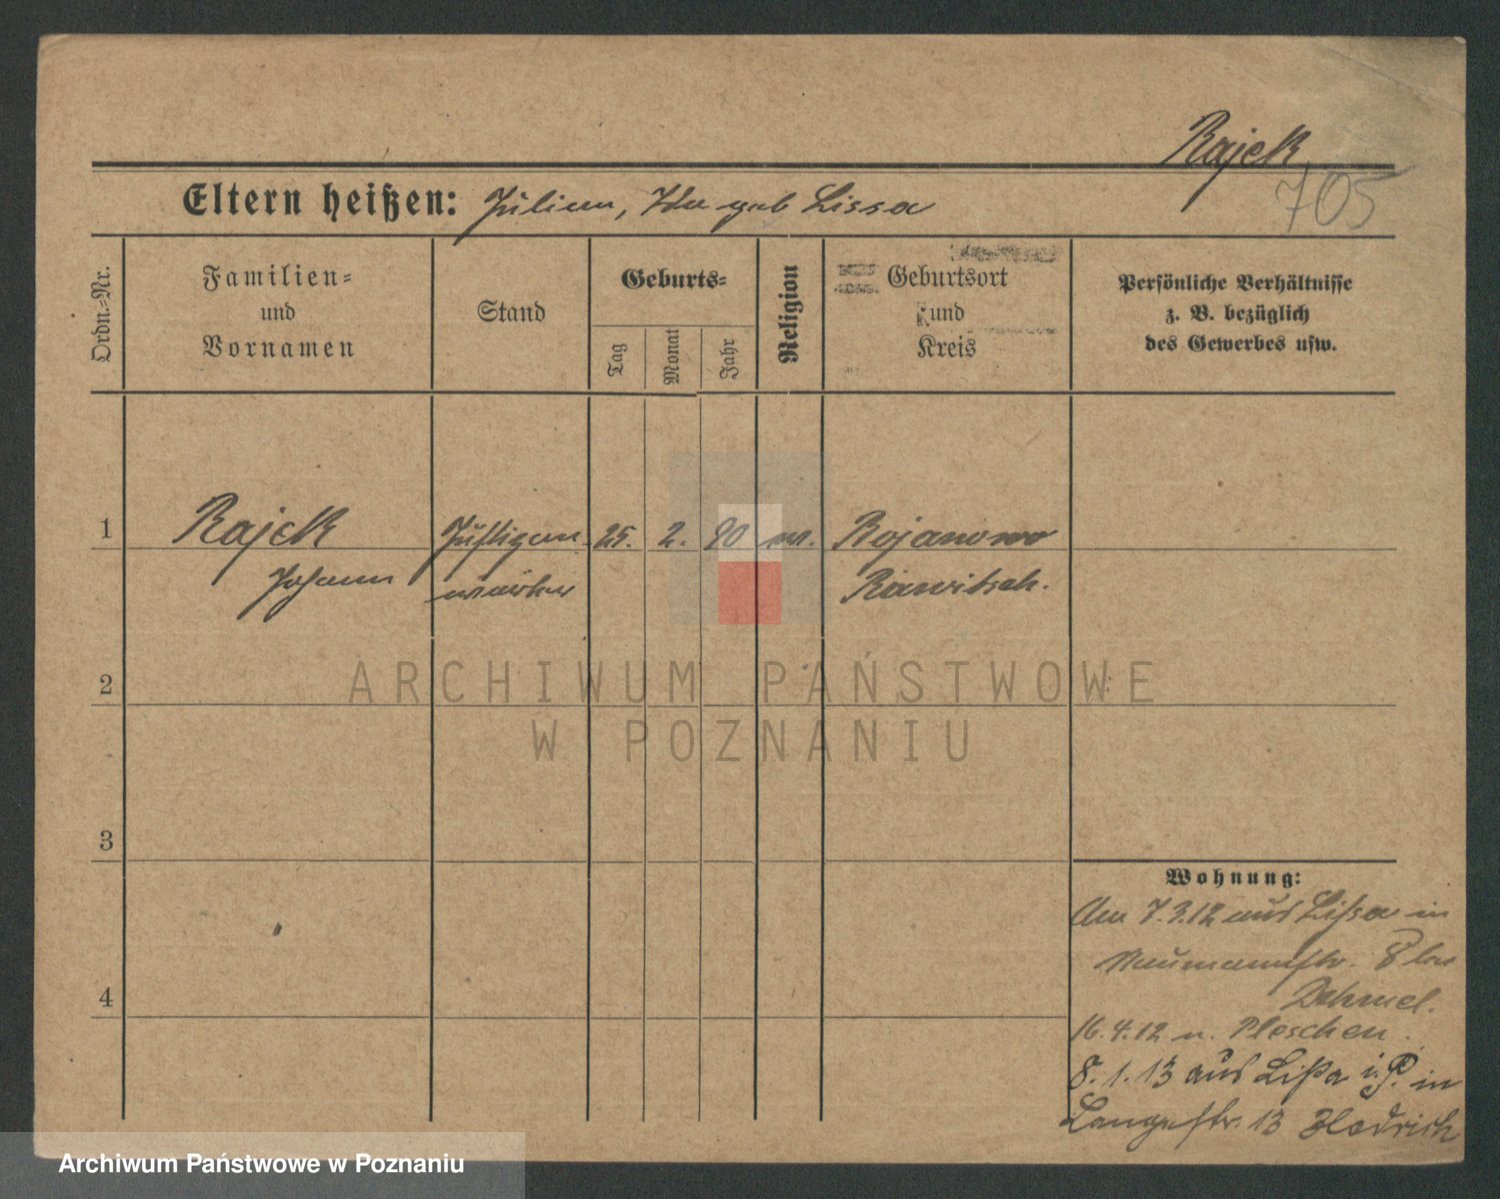 Rajek
705
Eltern heißen: Julian, Ida geb Lissa
Ordn.-Nr.
Familien-
und
Vornamen
Stand
Geburts-
Tag
Monat
Jahr
Religion
Geburtsort
und
Kreis
Persönliche Verhältnisse
z. B. bezüglich
des Gewerbes usw.
1
Rajek
Johann
Justizan-
wärter
25. 2. 90
Bojanowo
Rawitsch.
2
ARCHIWUM PAŃSTWOWE
W POZNANIU
3
4
Wohnung:
Am 7.3.12 aus Lissa in
Naumannstr. 8 bei
Dehmel.
16.4.12 n. Pleschen.
8.1.13 aus Lißa i.P. in
Langestr. 13
Archiwum Państwowe w Poznaniu